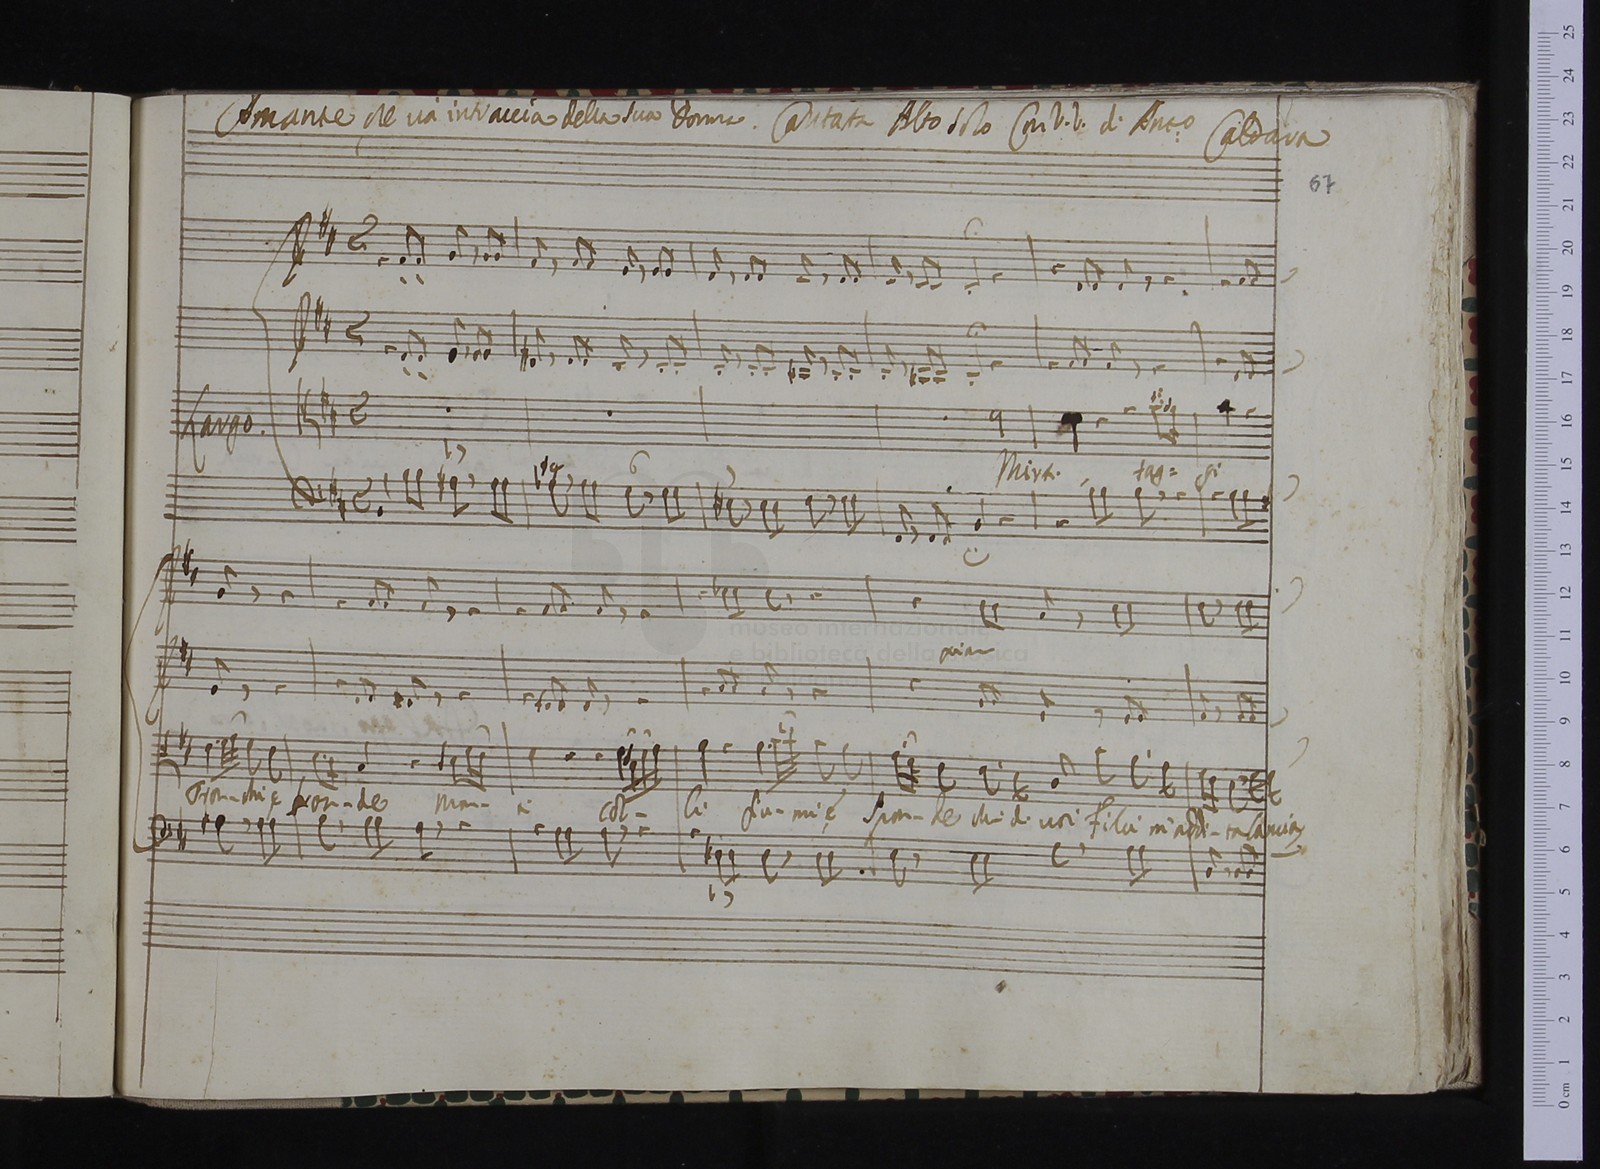 Amante che và in traccia della sua Donna. Cantata Alto Solo Con V.V. di Ant.o Caldara
67
Largo.
Mirti, fag= gi
museo internazionale
e biblioteca della musica
pia
Tron-chi e fron-de mar- i col- li fiu-mi e Spon-de chi di voi Filli m'addi-ta
25
24
23
22
21
20
19
18
17
16
15
14
13
12
11
10
9
8
7
6
5
4
3
2
1
0 cm